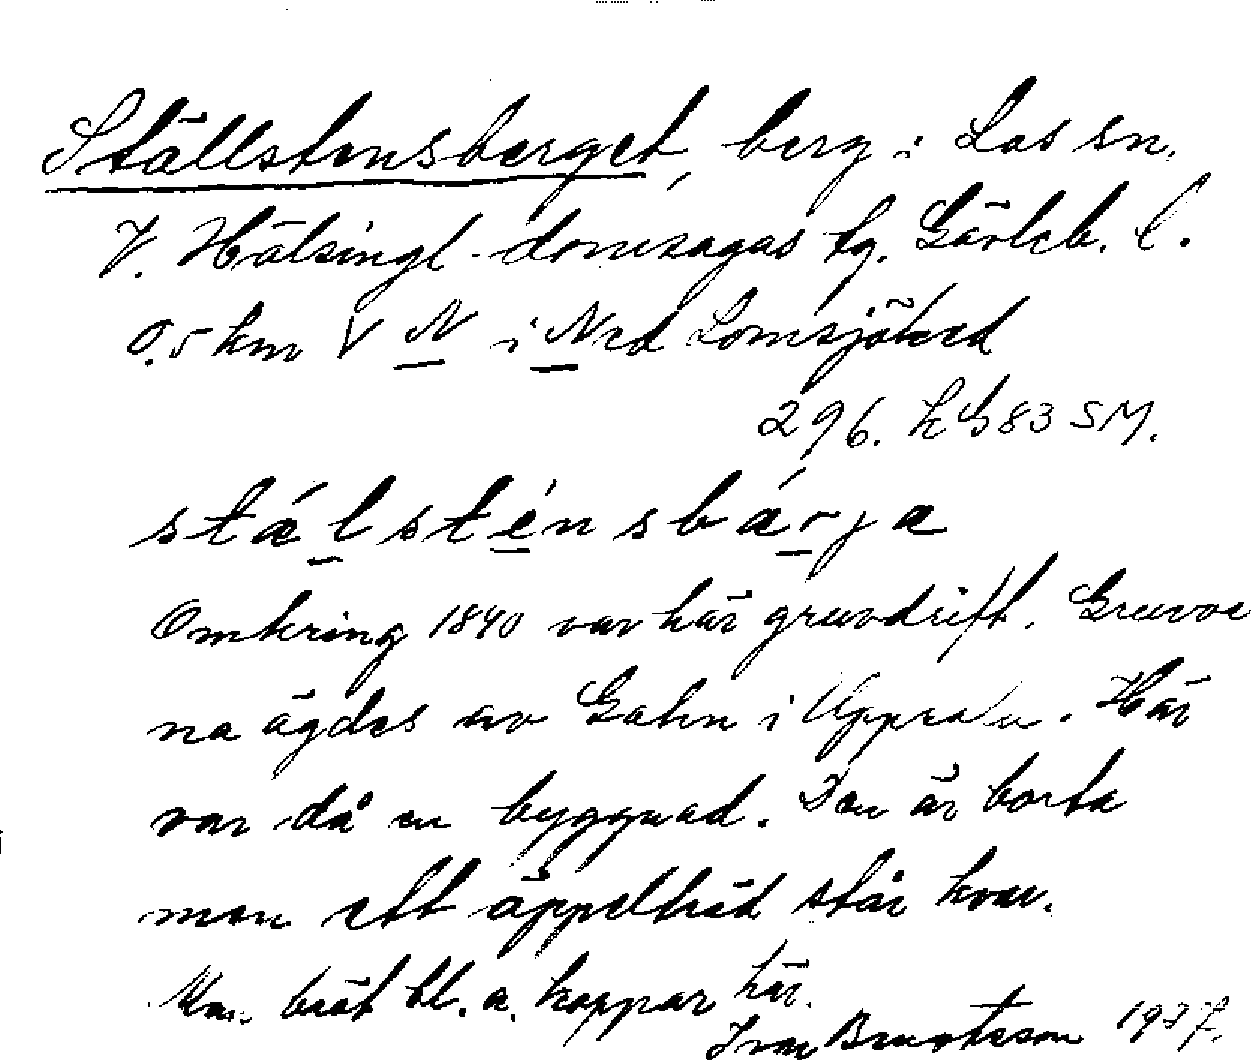 Ställstensberget, berg i Los sn.
V. Hälsingl. domsagas tg. Gävleb. l.
0,5 km V N i Ned Lomsjöbod
296. K G 83 SM.
stä́lsténsbä́rja
Omkring 1840 var här gruvdrift. Gruvo
na ägdes av Gahn i Uppsala. Här
var då en byggnad. Den är borta
men ett äppelträd står kvar.
Man bröt bl. a. koppar här.
Ivar 1937.